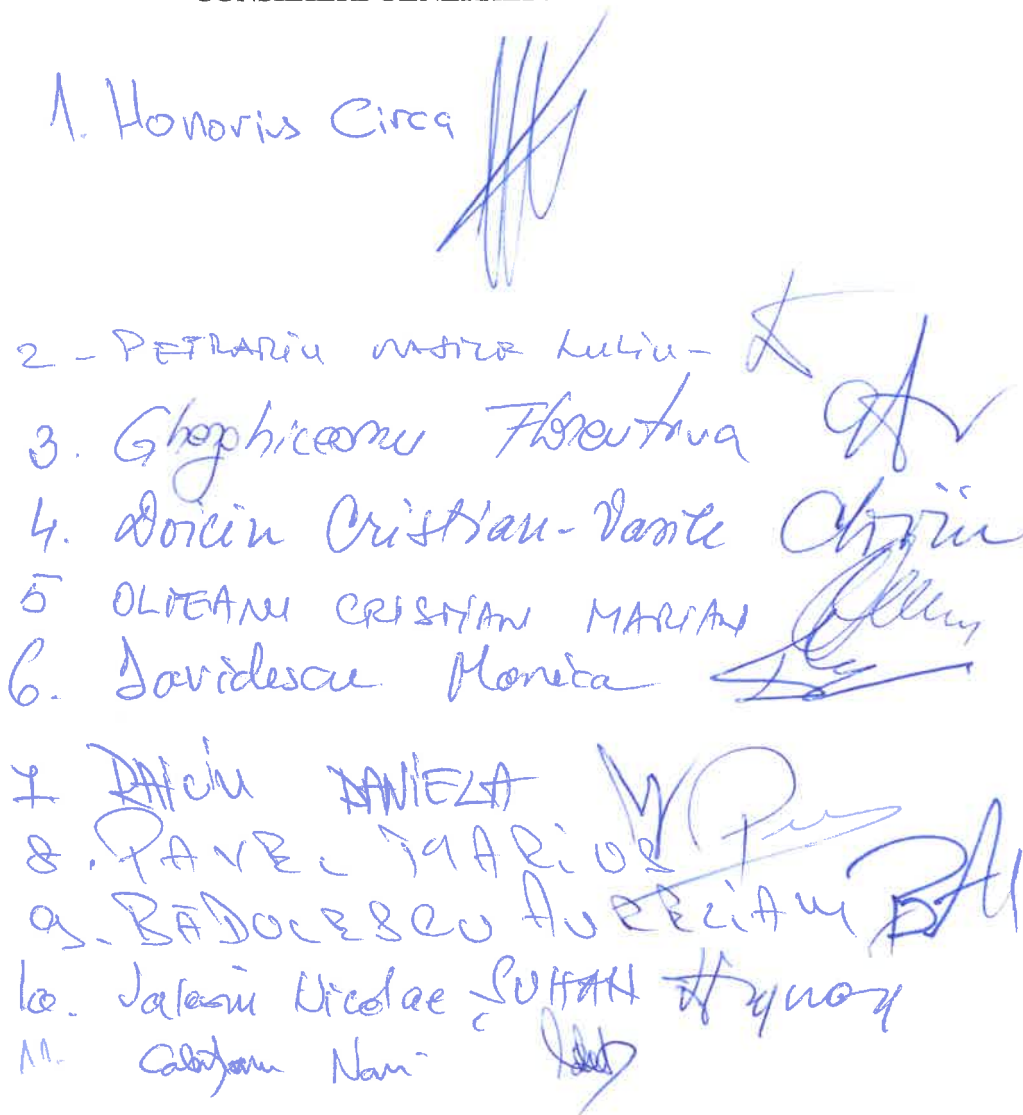 1. Honorius Circa
2 - PETRARIU VASILE LULIU -
3. Florentina
4. Doicin Cristian-Vasile
5 OLTEANU CRISTIAN MARIAN
6. Davidescu Monica
7 RAICIU DANIELA
8. PAVEL MARIUS
9. BĂDULESCU AURELIAN
10. Nicolae ȘUHAN
11.